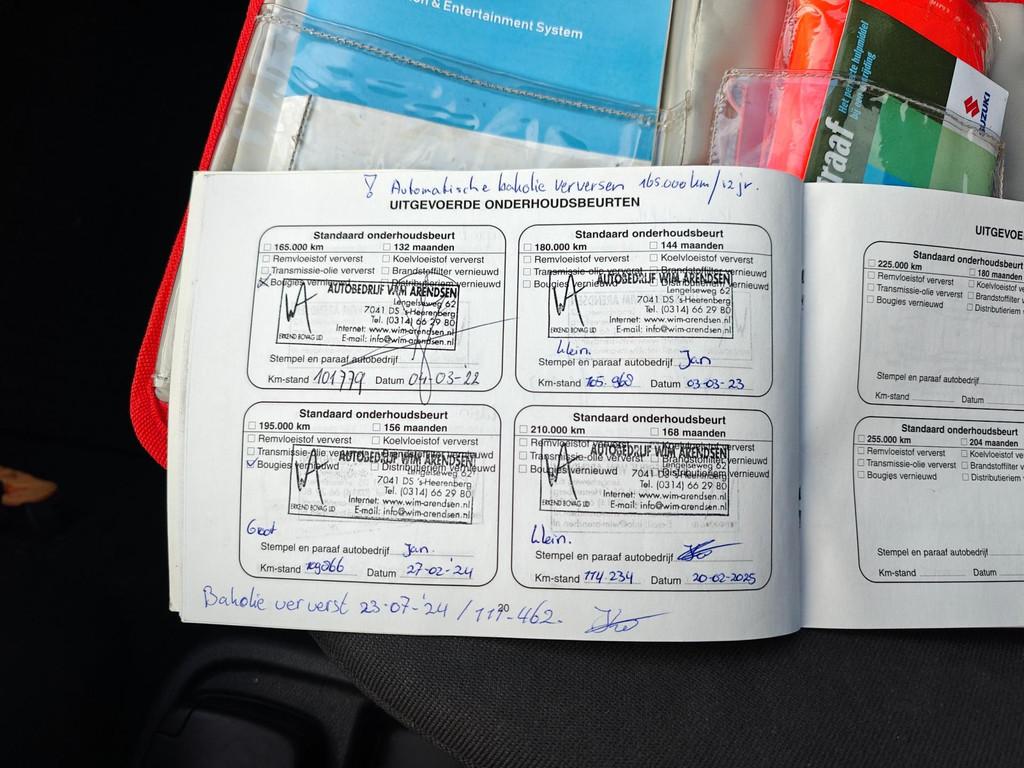 & Entertainment System
Het perfecte hulpmiddel
raaf
SUZUKI
! Automatische bakolie verversen 165.000km/12jr.
UITGEVOERDE ONDERHOUDSBEURTEN
Standaard onderhoudsbeurt
☐ 165.000 km ☐ 132 maanden
☐ Remvloeistof ververst ☐ Koelvloeistof ververst
☐ Transmissie-olie ververst ☐ Brandstoffilter vernieuwd
☒ Bougies vernieuwd ☐ Distributieriem vernieuwd
AUTOBEDRIJF WIM ARENDSEN
Lengelseweg 62
7041 DS 's-Heerenberg
Tel. (0314) 66 29 80
Internet: www.wim-arendsen.nl
ERKEND BOVAG LID E-mail: info@wim-arendsen.nl
Stempel en paraaf autobedrijf
Km-stand 101779 Datum 04-03-'22
Standaard onderhoudsbeurt
☐ 180.000 km ☐ 144 maanden
☐ Remvloeistof ververst ☐ Koelvloeistof ververst
☐ Transmissie-olie ververst ☐ Brandstoffilter vernieuwd
☐ Bougies vernieuwd ☐ Distributieriem vernieuwd
AUTOBEDRIJF WIM ARENDSEN
Lengelseweg 62
7041 DS 's-Heerenberg
Tel. (0314) 66 29 80
Internet: www.wim-arendsen.nl
ERKEND BOVAG LID E-mail: info@wim-arendsen.nl
klein.
Stempel en paraaf autobedrijf Jan
Km-stand 105.968 Datum 03-03-23
Standaard onderhoudsbeurt
☐ 195.000 km ☐ 156 maanden
☐ Remvloeistof ververst ☐ Koelvloeistof ververst
☐ Transmissie-olie ververst ☐ Brandstoffilter vernieuwd
☑ Bougies vernieuwd ☐ Distributieriem vernieuwd
AUTOBEDRIJF WIM ARENDSEN
Lengelseweg 62
7041 DS 's-Heerenberg
Tel. (0314) 66 29 80
Internet: www.wim-arendsen.nl
ERKEND BOVAG LID E-mail: info@wim-arendsen.nl
Groot
Stempel en paraaf autobedrijf Jan.
Km-stand 109266 Datum 27-02-'24
Standaard onderhoudsbeurt
☐ 210.000 km ☐ 168 maanden
☐ Remvloeistof ververst ☐ Koelvloeistof ververst
☐ Transmissie-olie ververst ☐ Brandstoffilter vernieuwd
☐ Bougies vernieuwd ☐ Distributieriem vernieuwd
AUTOBEDRIJF WIM ARENDSEN
Lengelseweg 62
7041 DS 's-Heerenberg
Tel. (0314) 66 29 80
Internet: www.wim-arendsen.nl
ERKEND BOVAG LID E-mail: info@wim-arendsen.nl
klein.
Stempel en paraaf autobedrijf
Km-stand 114.234 Datum 20-02-2025
20
Bakolie ververst 23-07-'24 / 111-462.
UITGEVOE
Standaard onderhoudsbeurt
☐ 225.000 km ☐ 180 maanden
☐ Remvloeistof ververst ☐ Koelvloeistof
☐ Transmissie-olie ververst ☐ Brandstoffilter
☐ Bougies vernieuwd ☐ Distributieriem
Stempel en paraaf autobedrijf
Km-stand Datum
Standaard onderhoudsbeurt
☐ 255.000 km ☐ 204 maanden
☐ Remvloeistof ververst ☐ Koelvloeistof
☐ Transmissie-olie ververst ☐ Brandstoffilter
☐ Bougies vernieuwd ☐ Distributieriem
Stempel en paraaf autobedrijf
Km-stand Datum